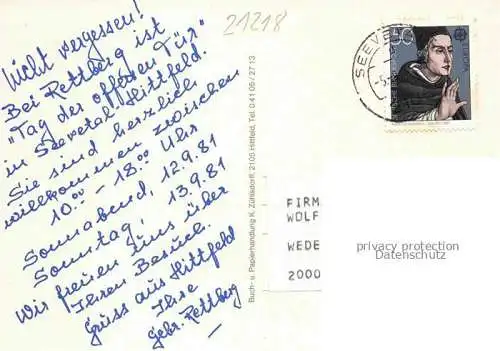 Nicht vergessen!
Bei Rettberg ist
"Tag der offenen Tür"
in Seevetal-Hittfeld.
Sie sind herzlich
willkommen zwischen
10.00 - 18.00 Uhr
Sonnabend, 12.9.81
Sonntag, 13.9.81
Wir freuen uns über
Ihren Besuch.
Gruss aus Hittfeld
Ihre
Gebr. Rettberg
21218
Buch- u. Papierhandlung K. Zühlsdorff, 2105 Hittfeld, Tel. 0 41 05 / 27 13
SEEVE
50
EUROPA
FIRM
WOLF
WEDE
2000
privacy protection
Datenschutz